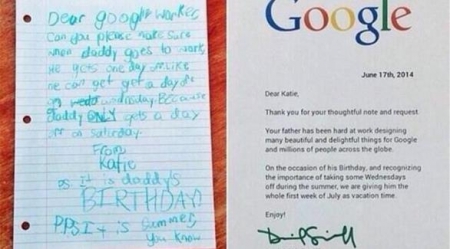 Dear google worker,
Can you please make sure
when daddy goes to work,
He gets one day off. Like
he can get a day off
on wednesday. Because
daddy ONLY gets a day
off on saturday.
From
Katie
PS. It is daddy's
BIRTHDAY!
PPS It is summer,
you know
Google
June 17th, 2014
Dear Katie,
Thank you for your thoughtful note and request.
Your father has been hard at work designing
many beautiful and delightful things for Google
and millions of people across the globe.
On the occasion of his Birthday, and recognizing
the importance of taking some Wednesdays
off during the summer, we are giving him the
whole first week of July as vacation time.
Enjoy!